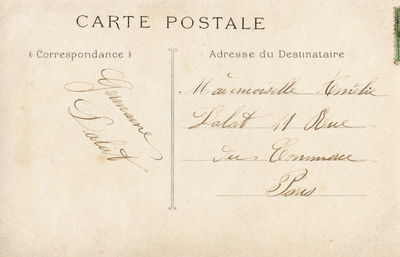 CARTE POSTALE
(Correspondance)
Germaine
Dalat
Adresse du Destinataire
Mademoiselle Amélie
Dalat 11 Rue
du Commerce
Paris